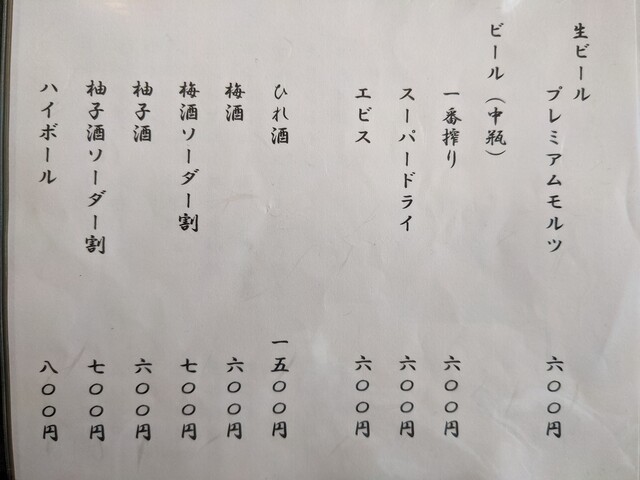 生ビール
プレミアムモルツ 六〇〇円
ビール（中瓶）
一番搾り 六〇〇円
スーパードライ 六〇〇円
エビス 六〇〇円
ひれ酒 一五〇〇円
梅酒 六〇〇円
梅酒ソーダー割 七〇〇円
柚子酒 六〇〇円
柚子酒ソーダー割 七〇〇円
ハイボール 八〇〇円